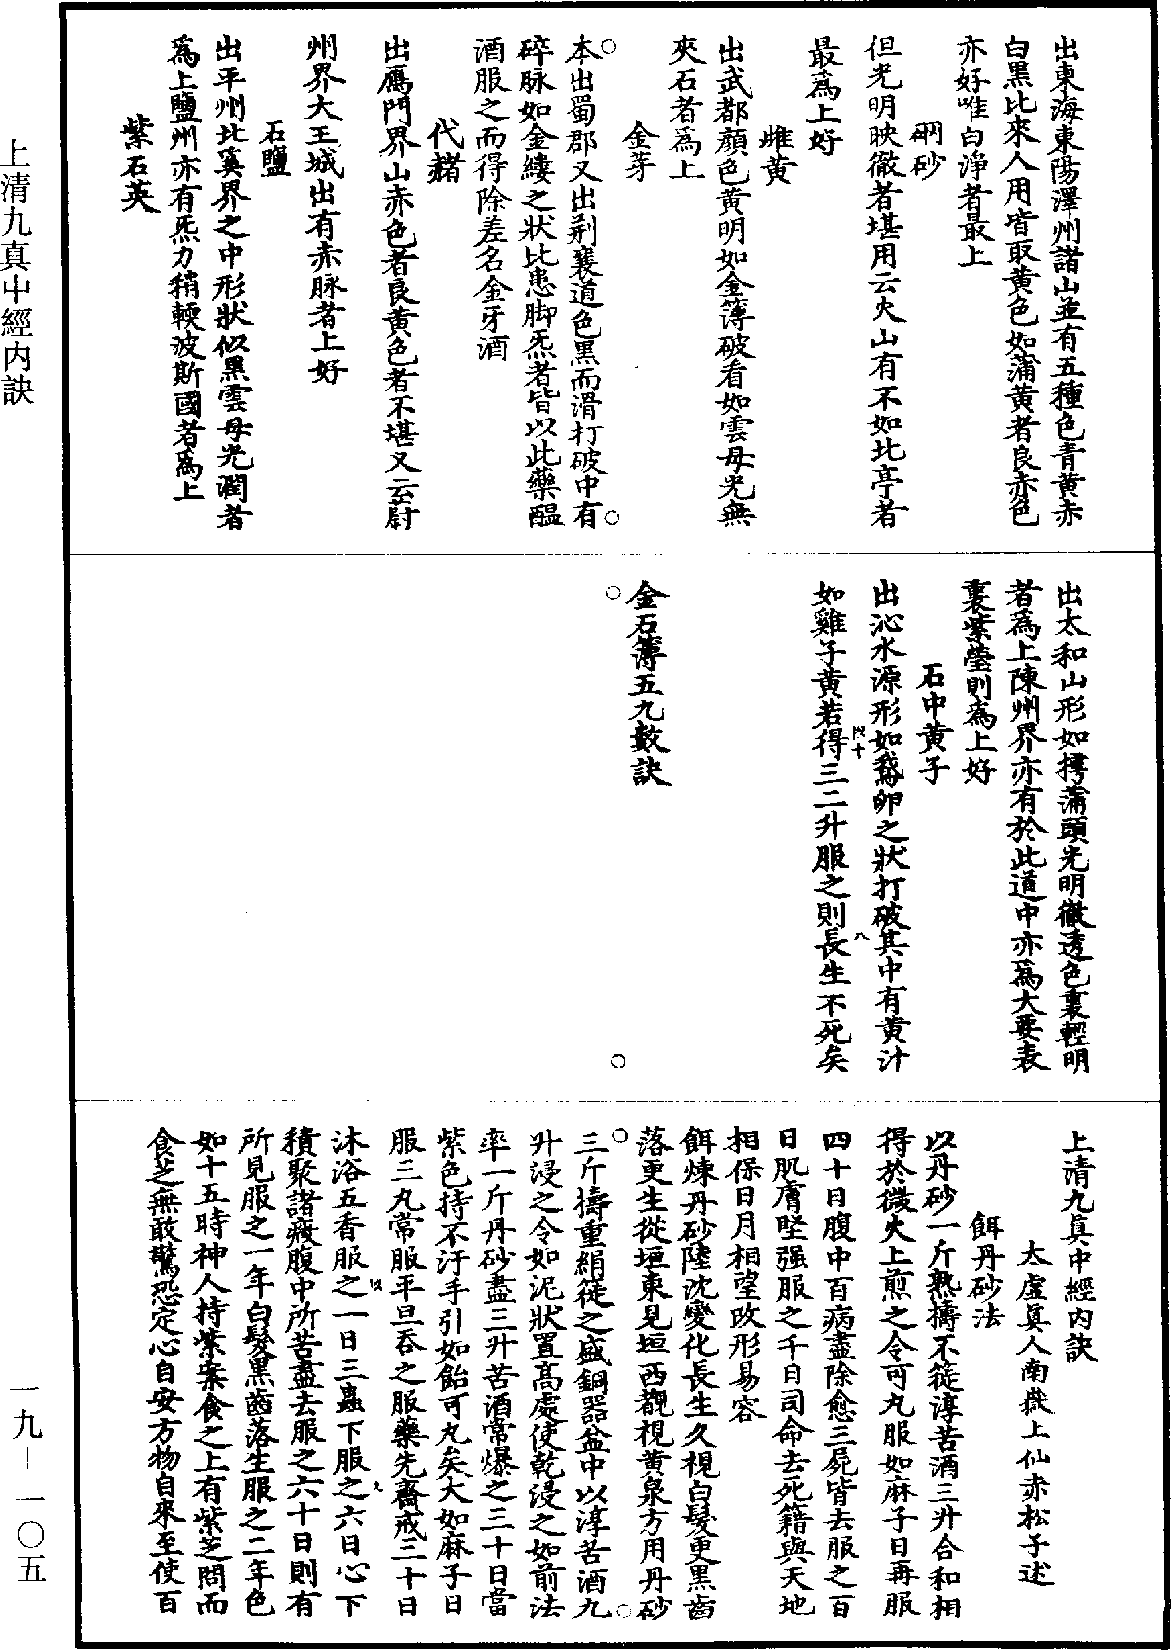 出東海東陽澤州諸山並有五種色青黃赤
白黑比來人用皆取黃色如蒲黃者良赤色
亦好唯白淨者最上
硇砂
但光明映徹者堪用云火山有不如北亭者
最爲上好
雌黃
出武都顏色黃明如金薄破看如雲母光無
夾石者爲上
金芽
本出蜀郡又出荊襄道色黑而滑打破中有
碎脉如金縷之狀比患脚炁者皆以此藥醞
酒服之而得除差名金牙酒
代赭
出鴈門界山赤色者良黃色者不堪又云尉
州界大王城出有赤脉者上好
石鹽
出平州北奚界之中形狀似黑雲母光潤者
爲上鹽州亦有炁力稍輭波斯國者爲上
紫石英
出太和山形如摴蒲頭光明徹透色裏輕明
者爲上陳州界亦有於此道中亦爲大要表
裏紫瑩則爲上好
石中黃子
出沁水源形如鵝卵之狀打破其中有黃汁
如雞子黃若得三二升服之則長生不死矣
四十
八
金石簿五九數訣
上清九真中經內訣
太虛真人南嶽上仙赤松子述
餌丹砂法
以丹砂一斤熟擣不簁淳苦酒三升合和相
得於微火上煎之令可丸服如麻子日再服
四十日腹中百病盡除愈三屍皆去服之百
日肌膚堅强服之千日司命去死籍與天地
相保日月相望改形易容
餌煉丹砂陸沈變化長生久視白髮更黑齒
落更生從垣東見垣西觀視黃泉方用丹砂
三斤擣重絹簁之盛銅器盆中以淳苦酒九
升浸之令如泥狀置高處使乾浸之如前法
率一斤丹砂盡三升苦酒常爆之三十日當
紫色持不汙手引如飴可丸矣大如麻子日
服三丸常服平旦吞之服藥先齋戒三十日
沐浴五香服之一日三蟲下服之六日心下
積聚諸癥腹中所苦盡去服之六十日則有
所見服之一年白髮黑齒落生服之二年色
如十五時神人持紫案食之上有紫芝問而
食芝無敢驚恐定心自安方物自來至使百
上清九真中經內訣
一九—一〇五